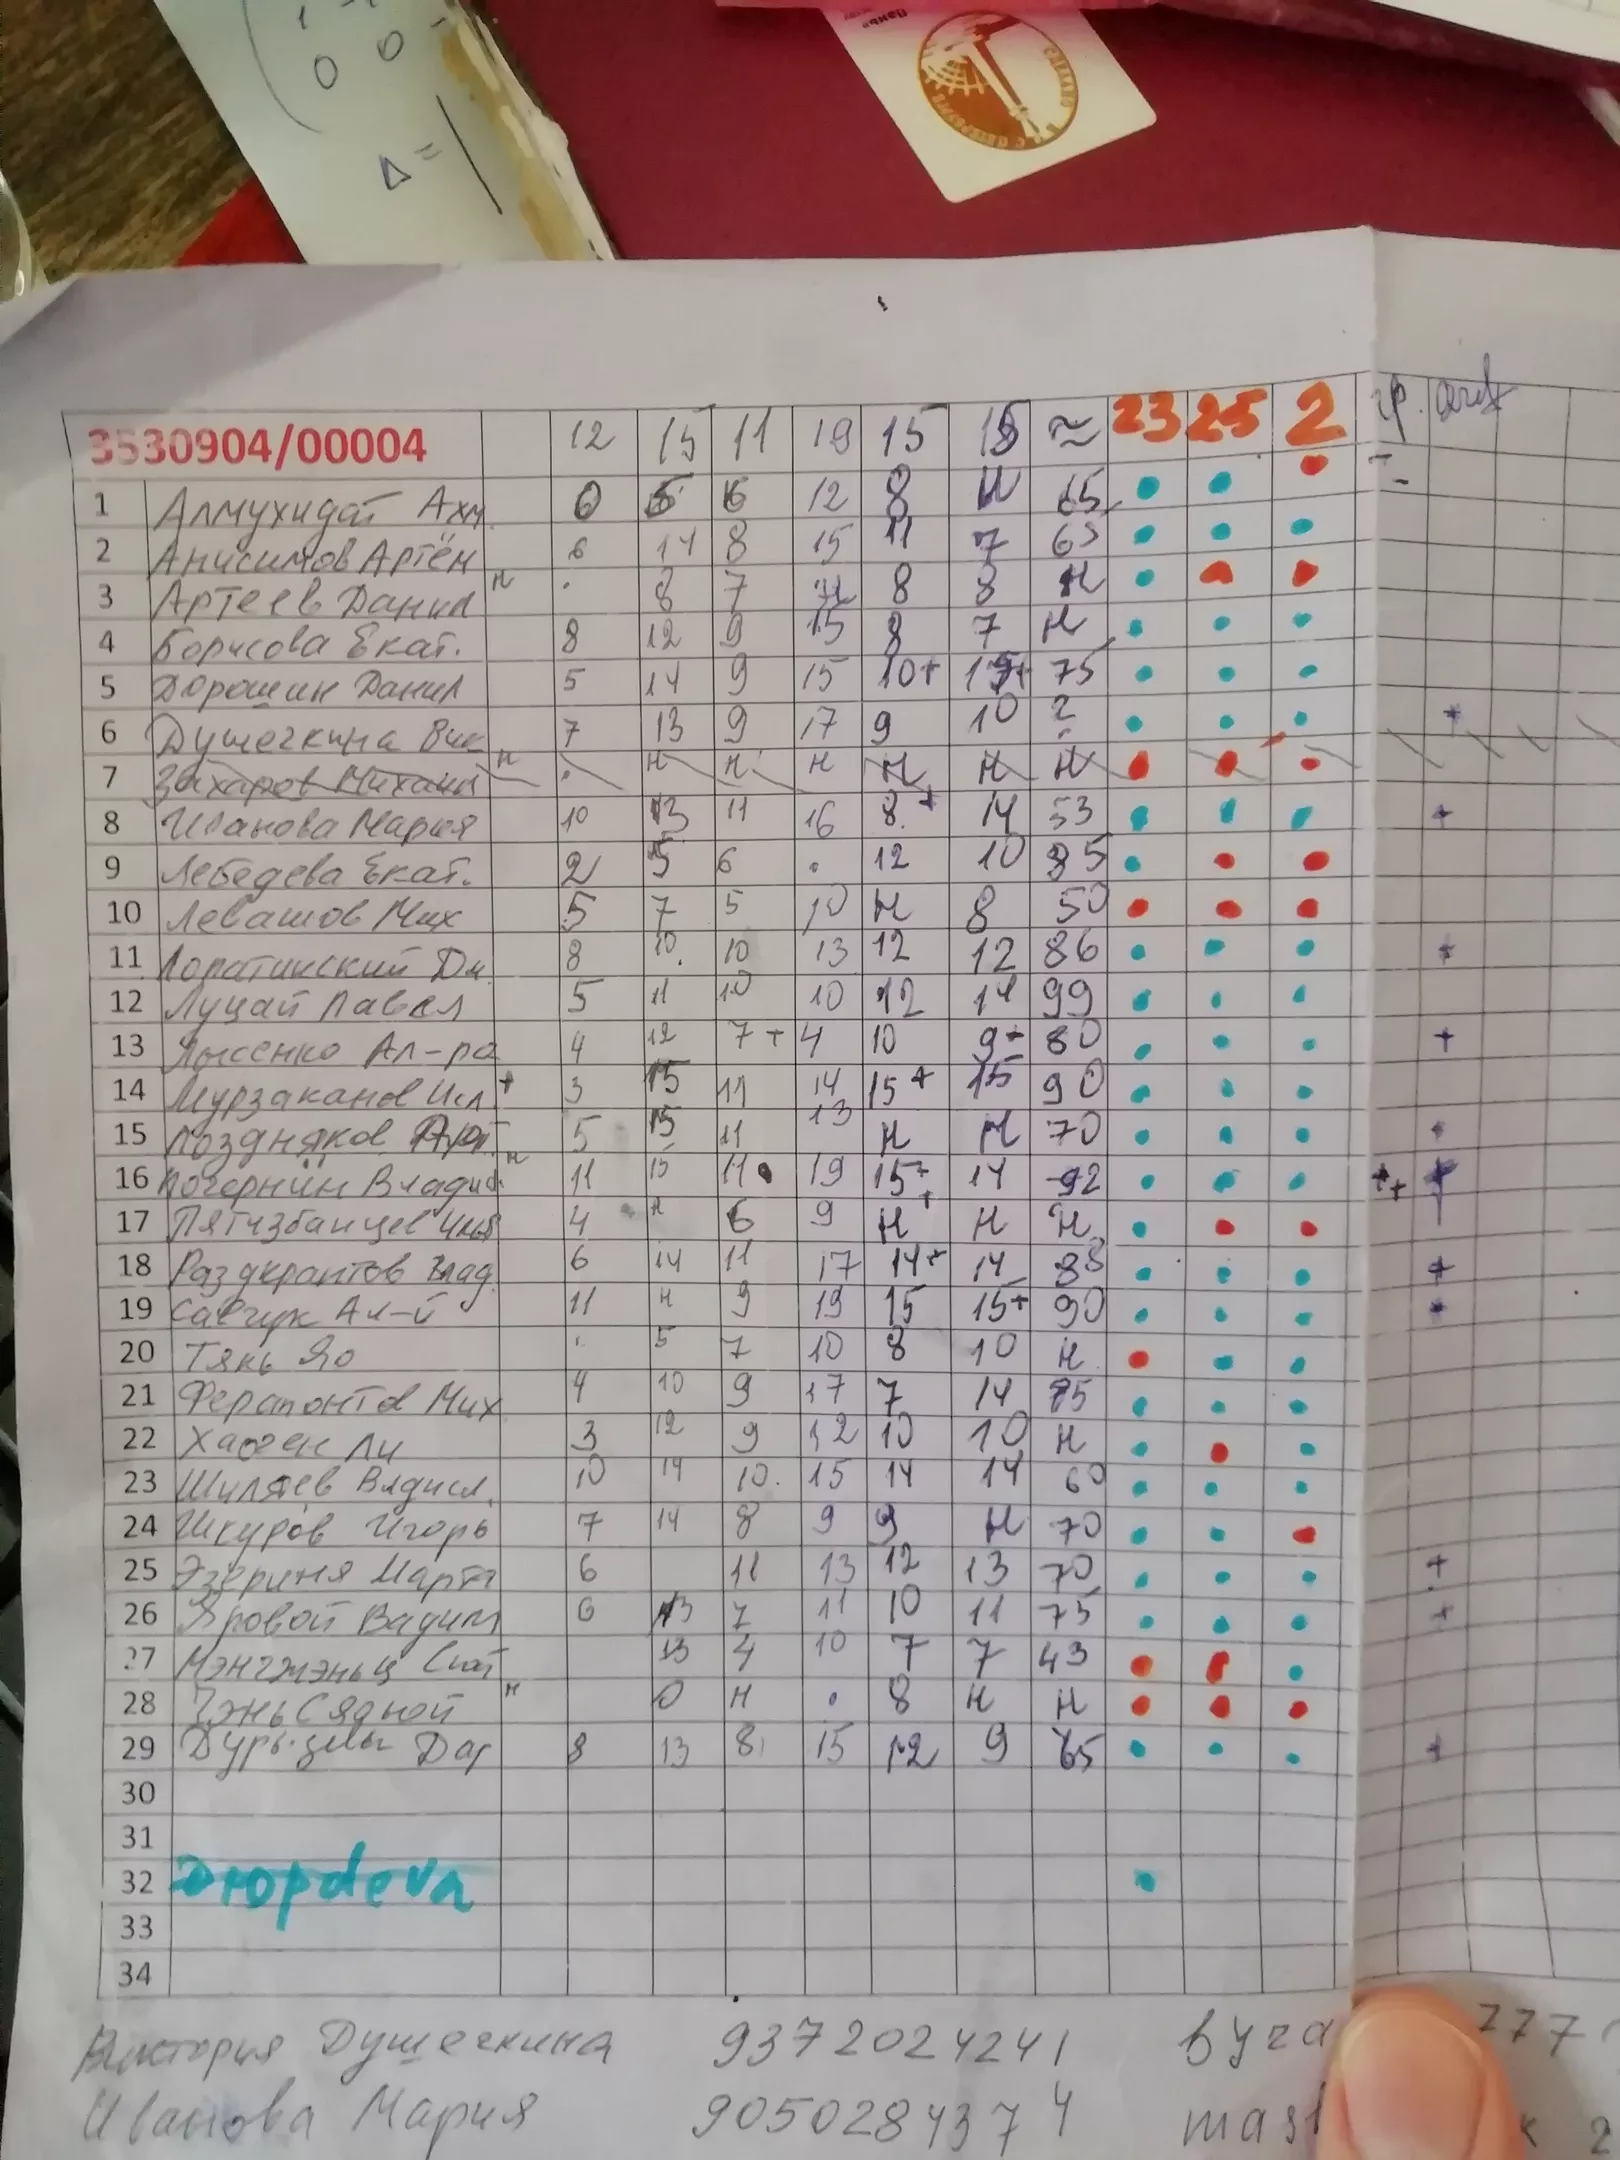 0 0
Δ =
СДЕЛАНО В С ПЕТЕРБУРГЕ
3530904/00004 12 15 11 19 15 15 ≈ 23 25 2 гр.
1 Алмухидат Ахм. 0 6 6 12 8 н 65
2 Анисимов Артём 6 14 8 15 11 7 65
3 Артеев Данил н . 8 7 н 8 8 н
4 Борисова Екат. 8 12 9 15 8 7 н
5 Дорошин Данил 5 14 9 15 10+ 75
6 Душечкина Вик 7 13 9 17 9 10 ? +
7 Захаров Михаил н . н н н н н н
8 Иванова Мария 10 13 11 16 8+ 14 53 +
9 Лебедева Екат. 2 5 6 . 12 10 85
10 Левашов Мих 5 7 5 10 н 8 50
11 Лопатинский Дм 8 10 10 13 12 12 86 +
12 Луцай Павел 5 11 10 10 12 14 99
13 Лысенко Ал-ра 4 12 7+ 4 10 9+ 80 +
14 Мурзаканов Исл. + 3 15 11 14 15+ 15 90
15 Поздняков Арт 5 15 11 13 н н 70 +
16 Почернин Владис. н 11 15 11 19 15+ 14 92 ++
17 Пятизбанцев Илья 4 н 6 9 н+ н н
18 Раздкрантов Влад. 6 14 11 17 14+ 14 88 +
19 Савчук Ал-й 11 н 9 19 15 15+ 90 +
20 Тянь Яо . 5 7 10 8 10 н
21 Ферапонтов Мих 4 10 9 17 7 14 75
22 Хаочен Ли 3 12 9 12 10 10 н
23 Шиляев Владисл. 10 14 10. 15 14 14 60
24 Шкуров Игорь 7 14 8 9 9 н 70
25 Эзериня Марта 6 11 13 12 13 70 +
26 Яровой Вадим 6 13 7 11 10 11 75 +
27 Мэнгжэньц 13 4 10 7 7 43
28 Чэнь Сядной н 0 н . 8 н н
29 Дар 8 13 8 15 12 9 65 +
30
31
32 Dropdeva
33
34
Виктория Душечкина 9372024241 byza 777
Иванова Мария 9050284374 mas 2